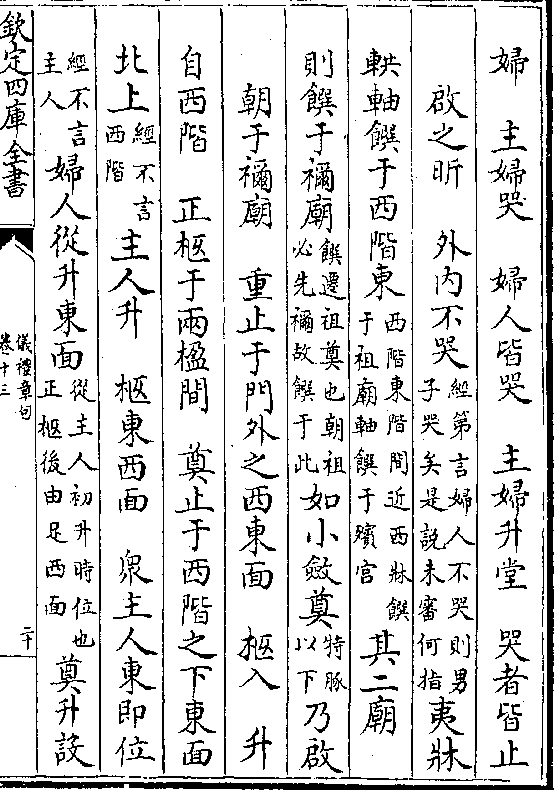 婦　主婦哭　婦人皆哭　主婦升堂　哭者皆止
啟之昕　外内不哭經第言婦人不哭則男子哭矣是說未審何指夷牀
輁軸饌于西階東西階東階間近西牀饌于祖廟軸饌于殯宫其二廟
則饌于禰廟饌遷祖奠也朝祖必先禰故饌于此如小斂奠特豚以下乃啟
朝于禰廟　重止于門外之西東面　柩入　升
自西階　正柩于兩楹間　奠止于西階之下東面
北上經不言西階主人升　柩東西面　衆主人東即位
經不言主人婦人從升東面從主人初升時位也正柩後由足西面奠升設
欽定四庫全書
儀禮章句
卷十三
二十